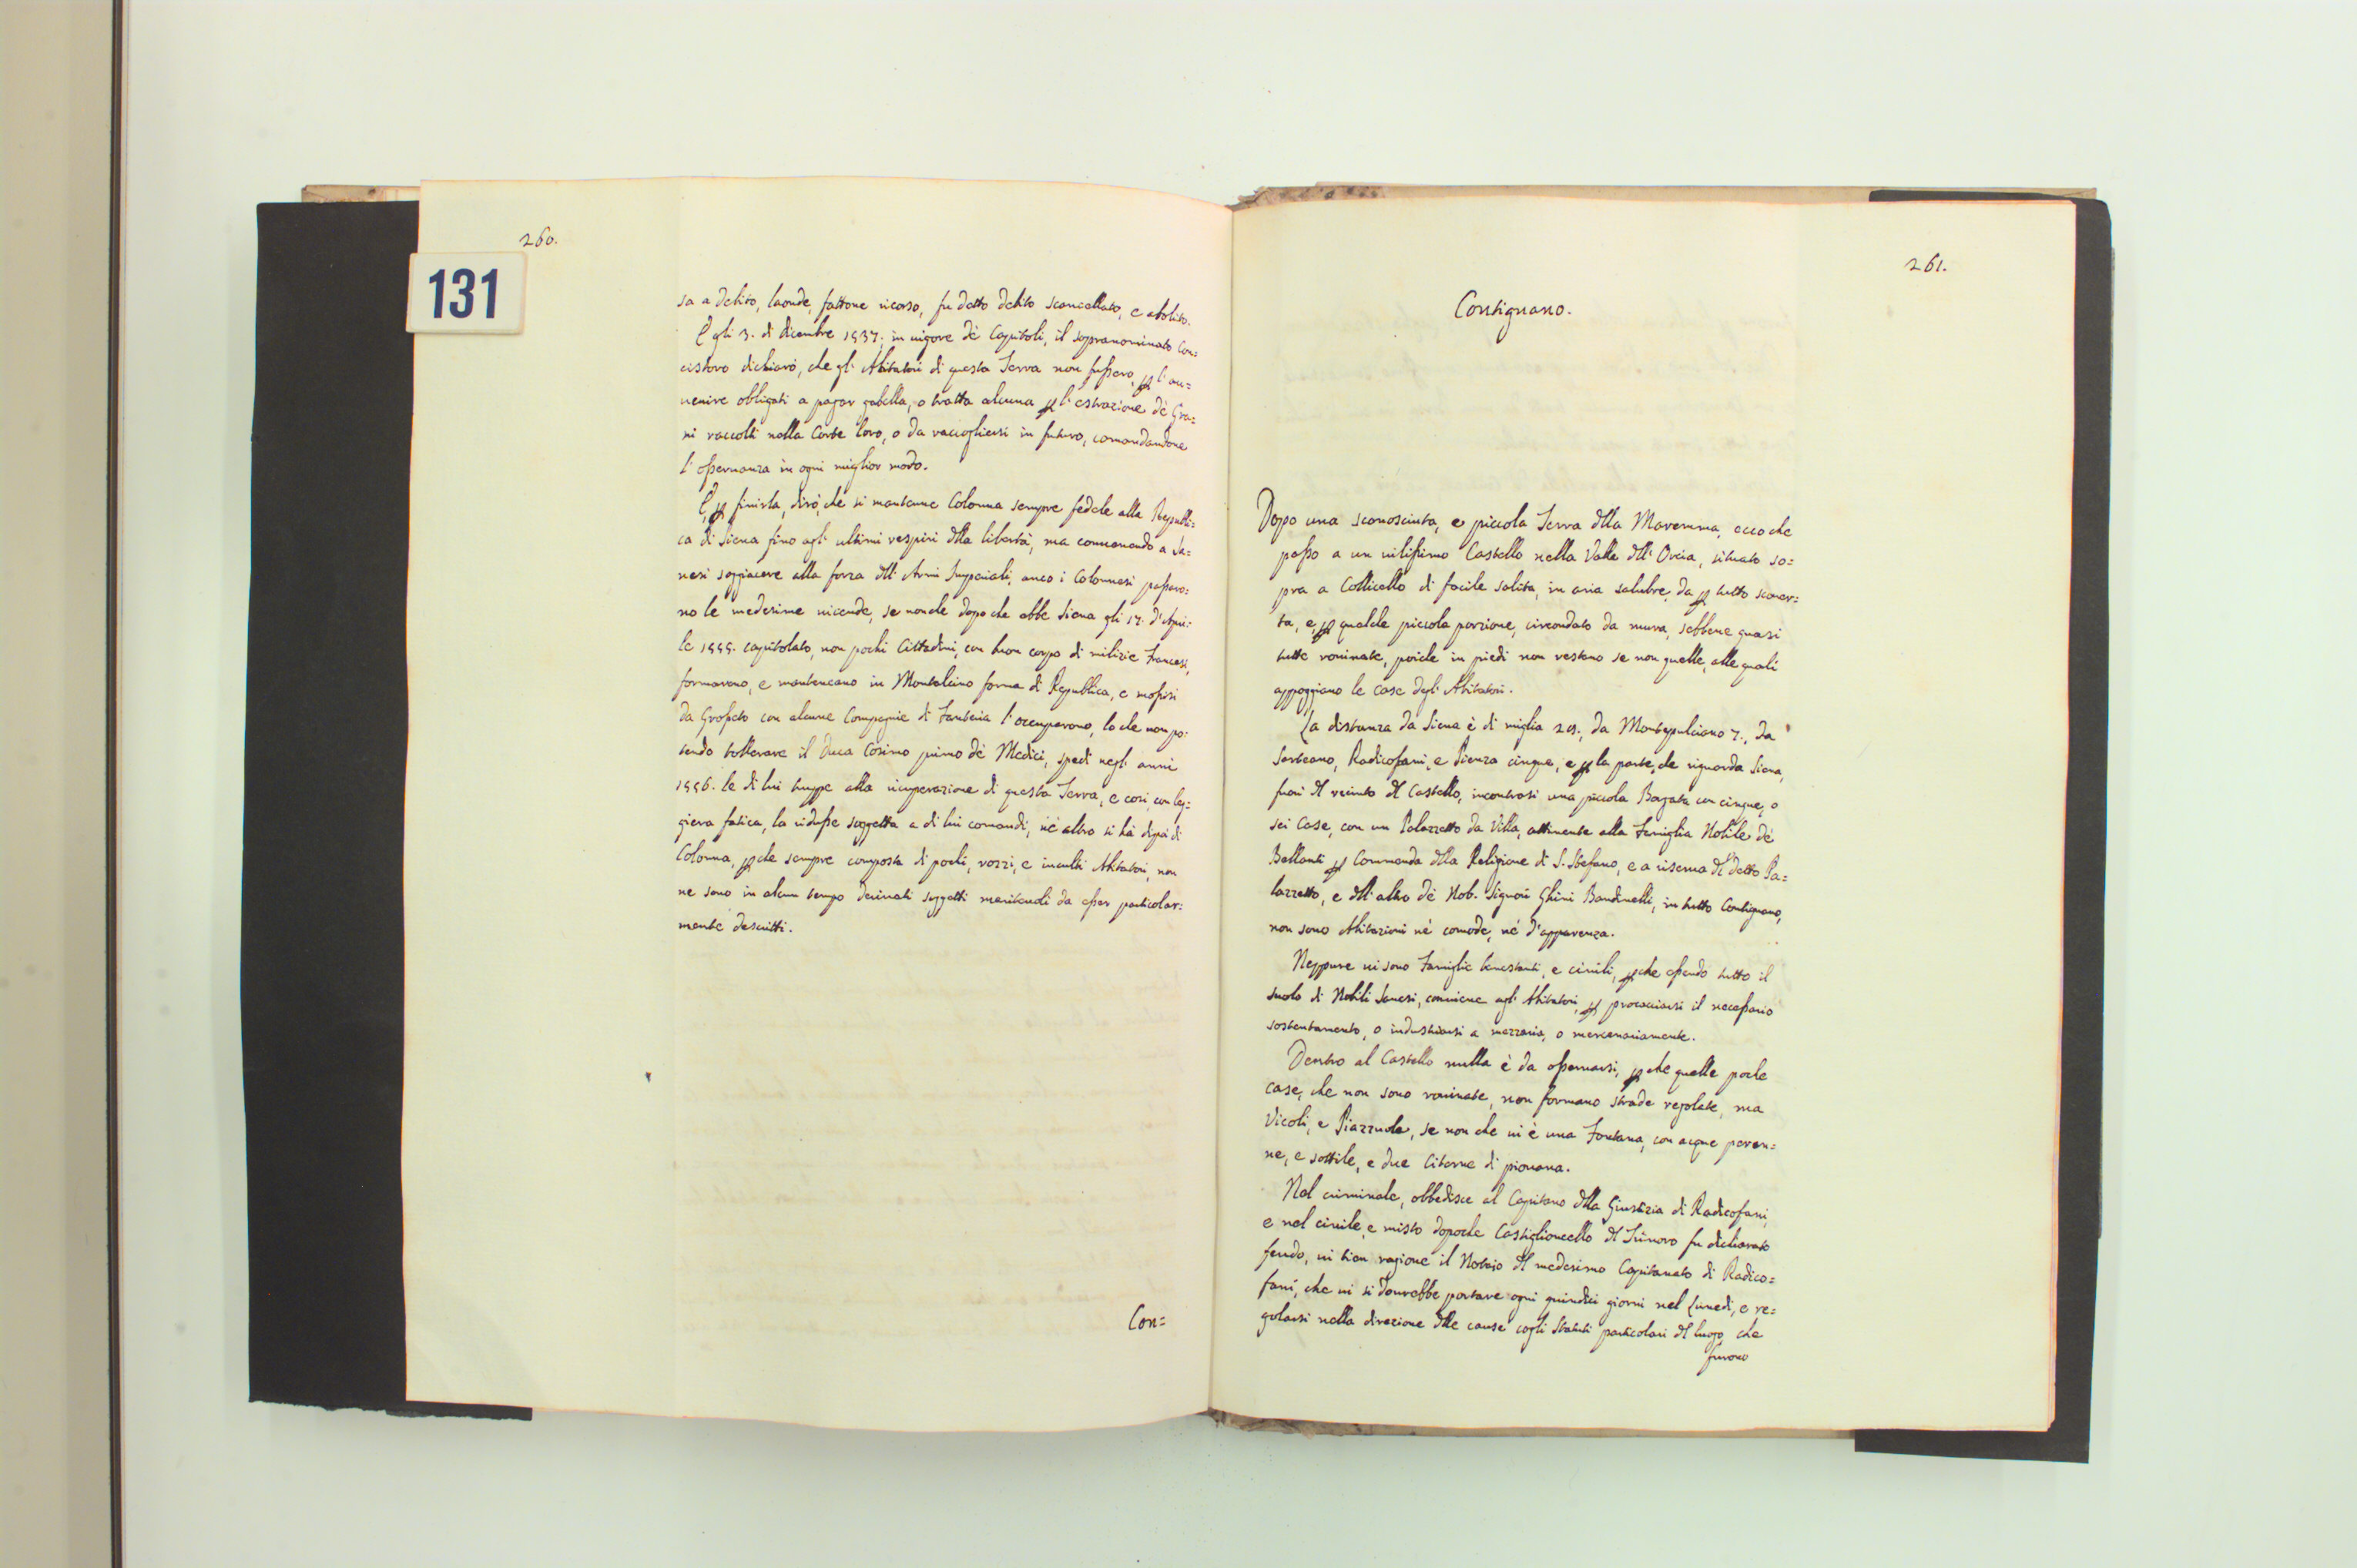 260.
131
sa a debito, laonde, fattone ricorso, fu detto debito scancellato, e abolito.
E gli 3. di dicembre 1537. in vigore dè Capitoli, il sopranominato Con=
cistoro dichiarò, che gl' Abitatori di questa Terra non fussero, p l'au=
uenire obligati a pagar gabella, o tratta alcuna p l'estrazione dè Gra=
ni raccolti nella Corte loro, o da raccogliersi in futuro, comandandone
l'osseruanza in ogni miglior modo.
E, p finirla, dirò, che si mantenne Colonna sempre fedele alla Republi=
ca di Siena fino agl' ultimi respiri dlla libertà, ma conuenendo a Sa=
nesi soggiacere alla forza dll' Armi Imperiali, anco i Colonnesi passaro=
no le medesime uicende, se nonche dopo che ebbe Siena gli 17. d'Apri=
le 1555. capitolato, non pochi Cittadini, con buon corpo di milizie Francesi,
formarono, e manteneano in Montalcino forma di Republica, e mossisi
da Grosseto con alcune Compagnie di Fanteria l'occuparono, lo che non po=
tendo tollerare il Duca Cosimo primo dè Medici, spedì negl' anni
1556. le di lui truppe alla ricuperazione di questa Terra, e così, con leg=
giera fatica, la ridusse soggetta a di lui comandi, nè altro si hà dipoi di
Colonna, pche sempre composta di pochi, rozzi, e inculti Abitatori, non
ne sono in alcun tempo deriuati soggetti meriteuoli da esser particolar=
mente descritti.
Con=
261.
Contignano.
Dopo una sconosciuta, e piccola Terra dlla Maremma, ecco che
passo a un uilissimo Castello nella Valle dll' Orcia, situato so=
pra a Collicello di facile salita, in aria salubre, da p tutto scoper=
ta, e, p qualche piccola porzione, circondato da mura, sebbene quasi
tutte rouinate, poiche in piedi non restano se non quelle, alle quali
appoggiano le case degl' Abitatori.
La distanza da Siena è di miglia 29., da Montepulciano 7., da
Sarteano, Radicofani, e Pienza cinque, e p la parte, che riguarda Siena,
fuori dl recinto dl Castello, incontrasi una piccola Borgata con cinque, o
sei Case, con un Palazzetto da Villa, attinente alla Famiglia Nobile dè
Ballanti p Commenda dlla Religione di S. Stefano, e a riserua di detto Pa=
lazzetto, e dll' altro dè Nob. Signori Ghini Bandinelli, in tutto Contignano,
non sono Abitazioni nè comode, nè d'apparenza.
Neppure ui sono Famiglie benestanti, e ciuili, pche essendo tutto il
suolo di Nobili Sanesi, conuiene agl' Abitatori, p procacciarsi il necessario
sostentamento, o industriarsi a mezzaria, o mercenariamente.
Dentro al Castello nulla è da osseruarsi, pche quelle poche
case, che non sono rouinate, non formano strade regolate, ma
Vicoli, e Piazzuole, se non che ui è una Fontana, con acque peren=
ne, e sottile, e due Citerne di piouana.
Nel criminale, obbedisce al Capitano dlla Giustizia di Radicofani,
e nel ciuile, e misto dopoche Castiglioncello dl Trinoro fu dichiarato
feudo, ui tien ragione il Notaio dl medesimo Capitanato di Radico=
fani, che ui si dourebbe portare ogni quindici giorni nel Lunedì, e re=
golarsi nella direzione dlle cause cogli Statuti particolari dl luogo, che
furono